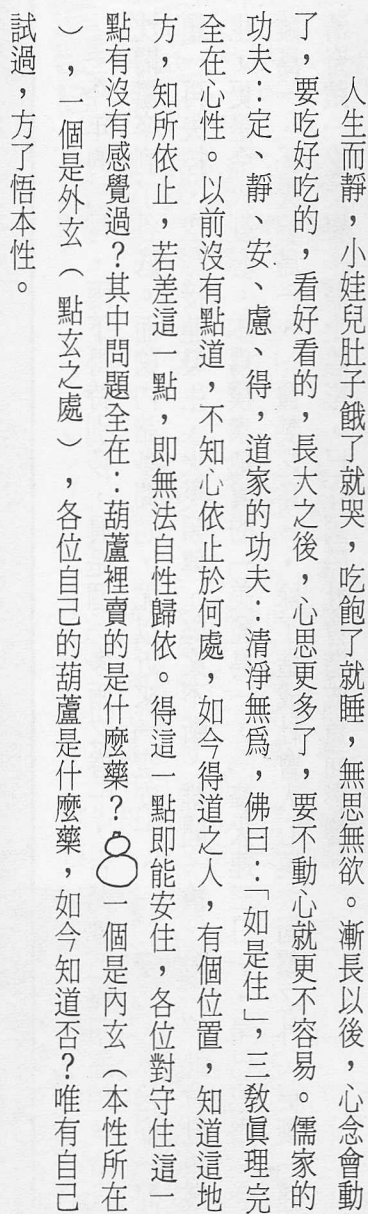 人生而靜，小娃兒肚子餓了就哭，吃飽了就睡，無思無欲。漸長以後，心念會動
了，要吃好吃的，看好看的，長大之後，心思更多了，要不動心就更不容易。儒家的
功夫：定、靜、安、慮、得，道家的功夫：清淨無為，佛曰：「如是住」，三教眞理完
全在心性。以前沒有點道，不知心依止於何處，如今得道之人，有個位置，知道這地
方，知所依止，若差這一點，即無法自性歸依。得這一點即能安住，各位對守住這一
點有沒有感覺過？其中問題全在：葫蘆裡賣的是什麼藥？一個是內玄（本性所在
），一個是外玄（點玄之處），各位自己的葫蘆是什麼藥，如今知道否？唯有自己
試過，方了悟本性。